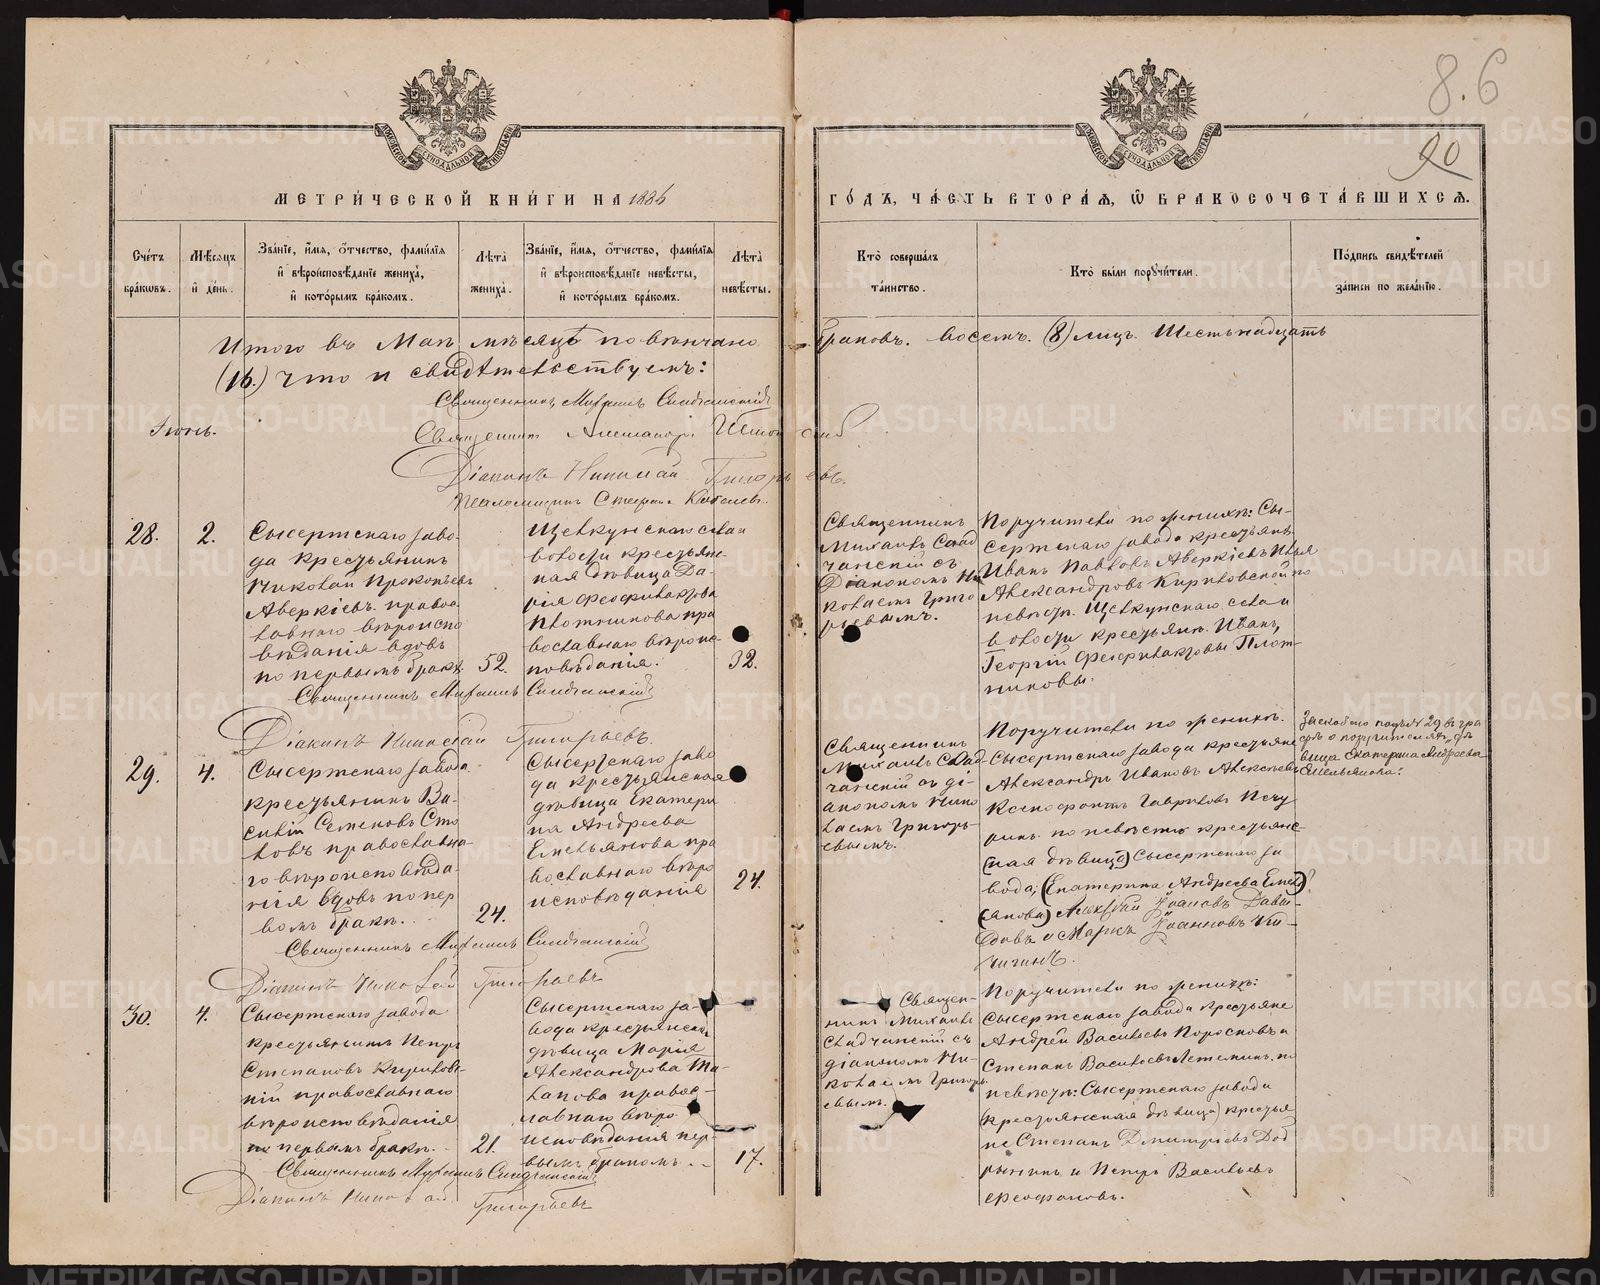 8.6
20
МЕТРИЧЕСКОЙ КНИГИ НА 1886
ГОДЪ, ЧАСТЬ ВТОРАЯ, Ѡ БРАКОСОЧЕТАВШИХСЯ.
Счетъ браковъ.
Мѣсяцъ и день.
Званіе, имя, отчество, фамилія и вѣроисповѣданіе жениха, и которымъ бракомъ.
Лѣта жениха.
Званіе, имя, отчество, фамилія и вѣроисповѣданіе невѣсты, и которымъ бракомъ.
Лѣта невѣсты.
Кто совершалъ таинство.
Кто были поручители.
Подпись свидѣтелей записи по желанію.
Итого въ Маѣ мѣсяцѣ повѣнчано браковъ. восемь. (8) лицъ. Шестьнадцать
(16.) что и свидѣтельствуемъ:
Священникъ Михаилъ
Священникъ
Діаконъ Николай Григорьевъ.
Псаломщикъ
Іюнь.
28.
2.
Сысертскаго заво-
да крестьянинъ
Николай Прокопьевъ
Аверкіевъ. правос
лавнаго вѣроиспо
вѣданія вдовъ
по первымъ бракѣ
52.
Щелкунскаго села и
волости крестьянс-
кая дѣвица Да-
рія Феофилактова
Плотникова пра
вославнаго вѣроис
повѣданія.
32.
Священникъ
Михаилъ
чанскій съ
Діакономъ Ни
колаемъ Григо
рьевымъ.
Поручители по женихѣ: Сы-
сертскаго завода крестьяне
Иванъ Павловъ Аверкіевъ Илья
Александровъ Кириловской по
невѣстѣ. Щелкунскаго села и
волости крестьян. Иванъ,
Георгій Феофилактовы Плот-
никовы.
Священникъ Михаилъ
Діаконъ Николай Григорьевъ.
29.
4.
Сысертскаго завода
крестьянинъ Ва-
силій Семеновъ Сто
ловъ православна-
го вѣроисповѣда-
нія вдовъ по пер
вомъ бракѣ.
24.
Сысертскаго заво
да крестьянская
дѣвица Екатери
на Андреева
Емельянова пра
вославнаго вѣро
исповѣданія
24.
Священникъ
Михаилъ
чанскій съ ді-
акономъ Нико
лаемъ Григорь-
евымъ.
Поручители по женихѣ.
Сысертскаго завода крестьяне
Александръ Ивановъ Алексѣевъ
Ксенофонтъ Гавриловъ Печу
ринъ. по невѣстѣ крестьянс-
(кая дѣвица) Сысертскаго за
вода, (Екатерина Андреева Емел)
(янова) Алексѣй Іоанновъ Давы-
довъ и Маркъ Іоанновъ Ки-
чигинъ.
Заскоблено подъ № 29 въ гра
фѣ о поручителяхъ „дѣ
вица Екатерина Андреева
Емельянова:
Священникъ Михаилъ
Діаконъ Николай Григорьевъ
30.
4.
Сысертскаго завода
крестьянинъ Петръ
Степановъ Кириловс-
кій православнаго
вѣроисповѣданія
по первымъ бракѣ.
21.
Сысертскаго за-
вода крестьянская
дѣвица Марія
Александрова
правос-
лавнаго вѣро
исповѣданія пер-
вымъ бракомъ.
17.
Священ-
никъ Михаилъ
чанскій съ
діакономъ Ни-
колаемъ Григорь
евымъ.
Поручители по женихѣ:
Сысертскаго завода крестьяне
Андрей Васильевъ Поросковъ и
Степанъ Васильевъ Летеминъ. по
невѣстѣ: Сысертскаго завода
(крестьянская дѣвица) крестья
не Степанъ Дмитріевъ Доб
рынинъ и Петръ Васильевъ
Феофановъ.
Священникъ Михаилъ
Діаконъ Николай Григорьевъ
METRIKI.GASO-URAL.RU